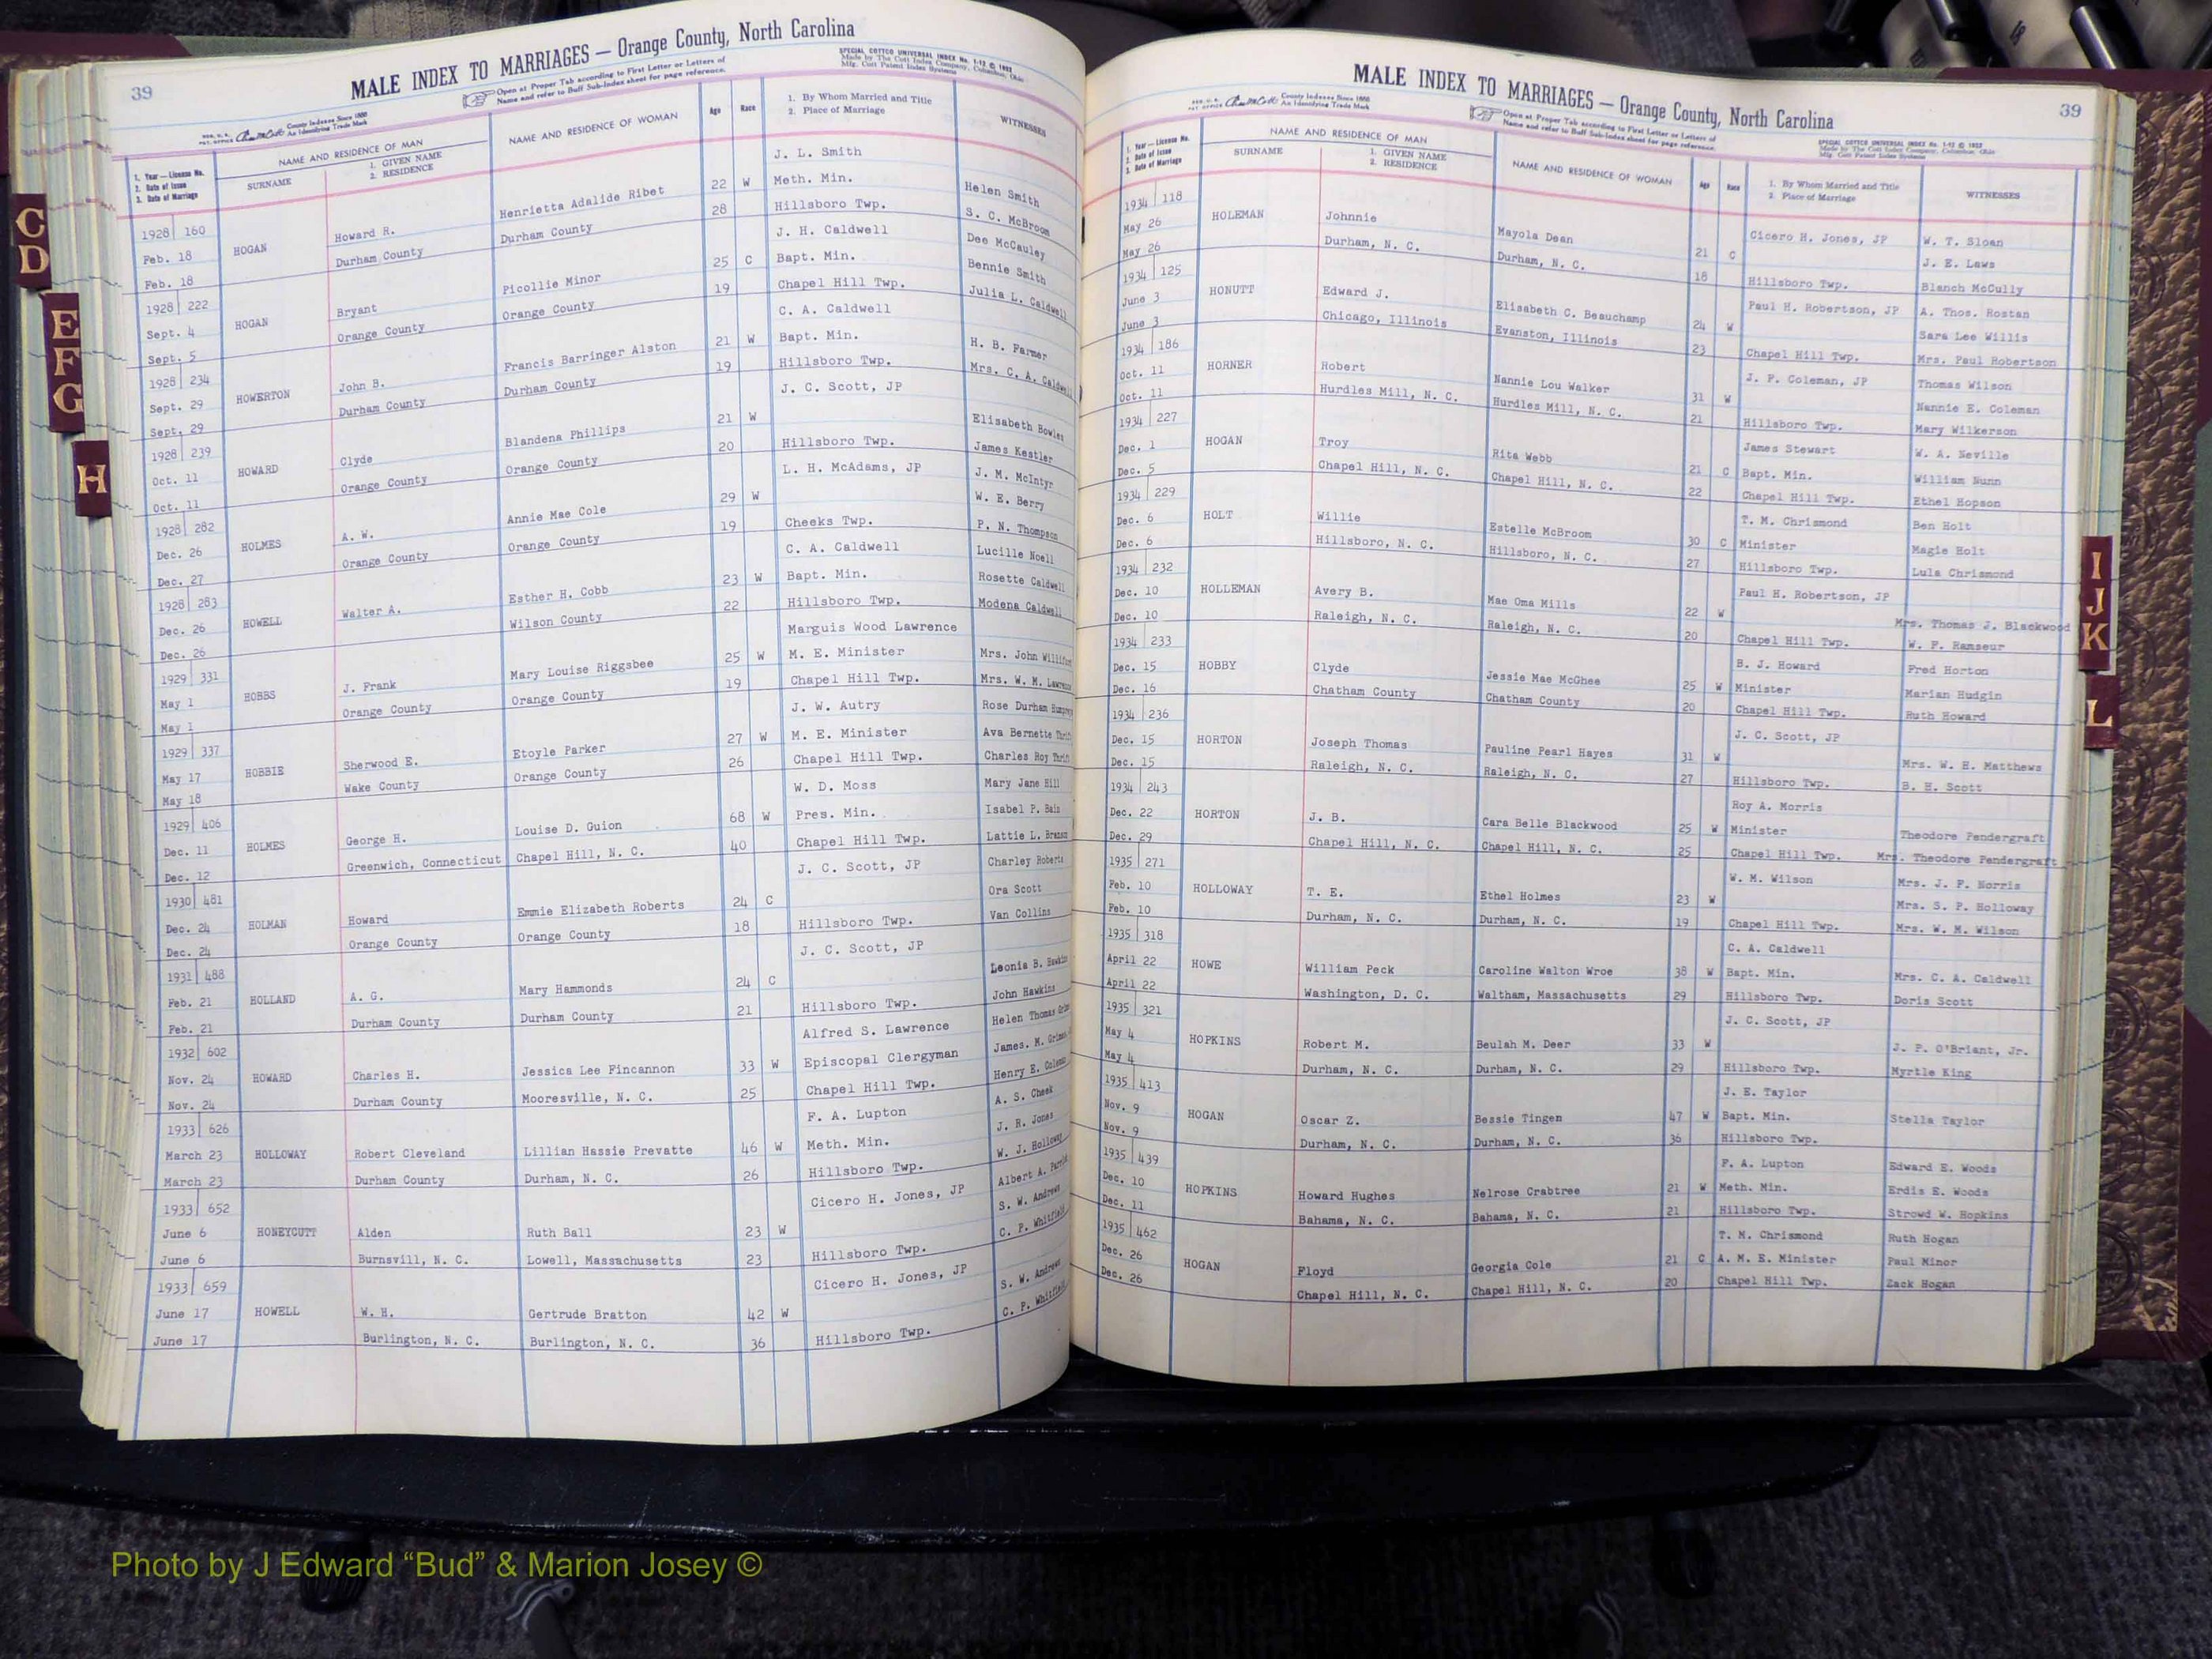 39
MALE INDEX TO MARRIAGES — Orange County, North Carolina
Open at Proper Tab according to First Letter or Letters of
Name and refer to Buff Sub-Index sheet for page reference.
SPECIAL COTTCO UNIVERSAL INDEX No. 1-12 © 1932
Made by The Cott Index Company, Columbus, Ohio
Mfg. Cott Patent Index Systems
REG. U. S. PAT. OFFICE County Indexes Since 1888
An Identifying Trade Mark
1. Year — License No.
2. Date of Issue
3. Date of Marriage
NAME AND RESIDENCE OF MAN
SURNAME
1. GIVEN NAME
2. RESIDENCE
NAME AND RESIDENCE OF WOMAN
Age
Race
1. By Whom Married and Title
2. Place of Marriage
WITNESSES
1928 160 J. L. Smith
Feb. 18 HOGAN Howard R. Henrietta Adalide Ribet 22 W Meth. Min. Helen Smith
Feb. 18 Durham County Durham County 28 Hillsboro Twp. S. C. McBroom
1928 222 J. H. Caldwell Dee McCauley
Sept. 4 HOGAN Bryant Picollie Minor 25 C Bapt. Min. Bennie Smith
Sept. 5 Orange County Orange County 19 Chapel Hill Twp. Julia L. Caldwell
1928 234 C. A. Caldwell
Sept. 29 HOWERTON John B. Francis Barringer Alston 21 W Bapt. Min. H. B. Farmer
Sept. 29 Durham County Durham County 19 Hillsboro Twp. Mrs. C. A.
1928 239 J. C. Scott, JP
Oct. 11 HOWARD Clyde Blandena Phillips 21 W Elisabeth Bowles
Oct. 11 Orange County Orange County 20 Hillsboro Twp. James Kestler
1928 282 L. H. McAdams, JP J. M. McIntyr
Dec. 26 HOLMES A. W. Annie Mae Cole 29 W W. E. Berry
Dec. 27 Orange County Orange County 19 Cheeks Twp. P. N. Thompson
1928 283 C. A. Caldwell Lucille Noell
Dec. 26 HOWELL Walter A. Esther H. Cobb 23 W Bapt. Min. Rosette Caldwell
Dec. 26 Wilson County 22 Hillsboro Twp. Modena Caldwell
1929 331 Marguis Wood Lawrence
May 1 HOBBS J. Frank Mary Louise Riggsbee 25 W M. E. Minister Mrs. John
May 1 Orange County Orange County 19 Chapel Hill Twp. Mrs. W. M.
1929 337 J. W. Autry Rose Durham
May 17 HOBBIE Sherwood E. Etoyle Parker 27 W M. E. Minister Ava Bernette
May 18 Wake County Orange County 26 Chapel Hill Twp. Charles Roy
1929 406 W. D. Moss Mary Jane Hill
Dec. 11 HOLMES George H. Louise D. Guion 68 W Pres. Min. Isabel P. Bain
Dec. 12 Greenwich, Connecticut Chapel Hill, N. C. 40 Chapel Hill Twp. Lattie L.
1930 481 J. C. Scott, JP Charley Roberts
Dec. 24 HOLMAN Howard Emmie Elizabeth Roberts 24 C Ora Scott
Dec. 24 Orange County Orange County 18 Hillsboro Twp. Van Collins
1931 488 J. C. Scott, JP
Feb. 21 HOLLAND A. G. Mary Hammonds 24 C Leonia B. Hawkins
Feb. 21 Durham County Durham County 21 Hillsboro Twp. John Hawkins
1932 602 Alfred S. Lawrence Helen Thomas
Nov. 24 HOWARD Charles H. Jessica Lee Fincannon 33 W Episcopal Clergyman James. M.
Nov. 24 Durham County Mooresville, N. C. 25 Chapel Hill Twp. Henry E.
1933 626 F. A. Lupton A. S. Cheek
March 23 HOLLOWAY Robert Cleveland Lillian Hassie Prevatte 46 W Meth. Min. J. R. Jones
March 23 Durham County Durham, N. C. 26 Hillsboro Twp. W. J. Holloway
1933 652 Cicero H. Jones, JP Albert A.
June 6 HONEYCUTT Alden Ruth Ball 23 W S. W. Andrews
June 6 Burnsvill, N. C. Lowell, Massachusetts 23 Hillsboro Twp. C. P. Whitfield
1933 659 Cicero H. Jones, JP
June 17 HOWELL W. H. Gertrude Bratton 42 W S. W. Andrews
June 17 Burlington, N. C. Burlington, N. C. 36 Hillsboro Twp. C. P. Whitfield
MALE INDEX TO MARRIAGES — Orange County, North Carolina
39
Open at Proper Tab according to First Letter or Letters of
Name and refer to Buff Sub-Index sheet for page reference.
SPECIAL COTTCO UNIVERSAL INDEX No. 1-12 © 1932
Made by The Cott Index Company, Columbus, Ohio
Mfg. Cott Patent Index Systems
REG. U. S. PAT. OFFICE County Indexes Since 1888
An Identifying Trade Mark
1. Year — License No.
2. Date of Issue
3. Date of Marriage
NAME AND RESIDENCE OF MAN
SURNAME
1. GIVEN NAME
2. RESIDENCE
NAME AND RESIDENCE OF WOMAN
Age
Race
1. By Whom Married and Title
2. Place of Marriage
WITNESSES
1934 118 Cicero H. Jones, JP W. T. Sloan
May 26 HOLEMAN Johnnie Mayola Dean 21 C J. E. Laws
May 26 Durham, N. C. Durham, N. C. 18 Hillsboro Twp. Blanch McCully
1934 125 Paul H. Robertson, JP A. Thos. Rostan
June 3 HONUTT Edward J. Elisabeth C. Beauchamp 24 W Sara Lee Willis
June 3 Chicago, Illinois Evanston, Illinois 23 Chapel Hill Twp. Mrs. Paul Robertson
1934 186 J. F. Coleman, JP Thomas Wilson
Oct. 11 HORNER Robert Nannie Lou Walker 31 W Nannie E. Coleman
Oct. 11 Hurdles Mill, N. C. Hurdles Mill, N. C. 21 Hillsboro Twp. Mary Wilkerson
1934 227 James Stewart W. A. Neville
Dec. 1 HOGAN Troy Rita Webb 21 C Bapt. Min. William Nunn
Dec. 5 Chapel Hill, N. C. Chapel Hill, N. C. 22 Chapel Hill Twp. Ethel Hopson
1934 229 T. M. Chrismond Ben Holt
Dec. 6 HOLT Willie Estelle McBroom 30 C Minister Magie Holt
Dec. 6 Hillsboro, N. C. Hillsboro, N. C. 27 Hillsboro Twp. Lula Chrismond
1934 232 Paul H. Robertson, JP
Dec. 10 HOLLEMAN Avery B. Mae Oma Mills 22 W Mrs. Thomas J. Blackwood
Dec. 10 Raleigh, N. C. Raleigh, N. C. 20 Chapel Hill Twp. W. F. Ramseur
1934 233 B. J. Howard Fred Horton
Dec. 15 HOBBY Clyde Jessie Mae McGhee 25 W Minister Marian Hudgin
Dec. 16 Chatham County Chatham County 20 Chapel Hill Twp. Ruth Howard
1934 236 J. C. Scott, JP
Dec. 15 HORTON Joseph Thomas Pauline Pearl Hayes 31 W Mrs. W. H. Matthews
Dec. 15 Raleigh, N. C. Raleigh, N. C. 27 Hillsboro Twp. B. H. Scott
1934 243 Roy A. Morris
Dec. 22 HORTON J. B. Cara Belle Blackwood 25 W Minister Theodore Pendergraft
Dec. 29 Chapel Hill, N. C. Chapel Hill, N. C. 25 Chapel Hill Twp. Mrs. Theodore Pendergraft
1935 271 W. M. Wilson Mrs. J. F. Norris
Feb. 10 HOLLOWAY T. E. Ethel Holmes 23 W Mrs. S. P. Holloway
Feb. 10 Durham, N. C. Durham, N. C. 19 Chapel Hill Twp. Mrs. W. M. Wilson
1935 318 C. A. Caldwell
April 22 HOWE William Peck Caroline Walton Wroe 38 W Bapt. Min. Mrs. C. A. Caldwell
April 22 Washington, D. C. Waltham, Massachusetts 29 Hillsboro Twp. Doris Scott
1935 321 J. C. Scott, JP
May 4 HOPKINS Robert M. Beulah M. Deer 33 W J. P. O'Briant, Jr.
May 4 Durham, N. C. Durham, N. C. 29 Hillsboro Twp. Myrtle King
1935 413 J. E. Taylor
Nov. 9 HOGAN Oscar Z. Bessie Tingen 47 W Bapt. Min. Stella Taylor
Nov. 9 Durham, N. C. Durham, N. C. 36 Hillsboro Twp.
1935 439 F. A. Lupton Edward E. Woods
Dec. 10 HOPKINS Howard Hughes Nelrose Crabtree 21 W Meth. Min. Erdis E. Woods
Dec. 11 Bahama, N. C. Bahama, N. C. 21 Hillsboro Twp. Strowd W. Hopkins
1935 462 T. M. Chrismond Ruth Hogan
Dec. 26 HOGAN Floyd Georgia Cole 21 C A. M. E. Minister Paul Minor
Dec. 26 Chapel Hill, N. C. Chapel Hill, N. C. 20 Chapel Hill Twp. Zack Hogan
C
D
E
F
G
H
I
J
K
L
18
Photo by J Edward “Bud” & Marion Josey ©